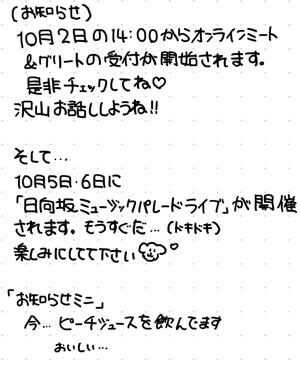 (お知らせ)
10月2日の14:00からオンラインミート
&グリートの受付が開始されます。
是非チェックしてね♡
沢山お話ししようね!!
そして…
10月5日・6日に
「日向坂ミュージックパレードライブ」が開催
されます。もうすぐだ…(ドキドキ)
楽しみにしてて下さい♡
「お知らせミニ」
今…ピーチジュースを飲んでます
おいしい…